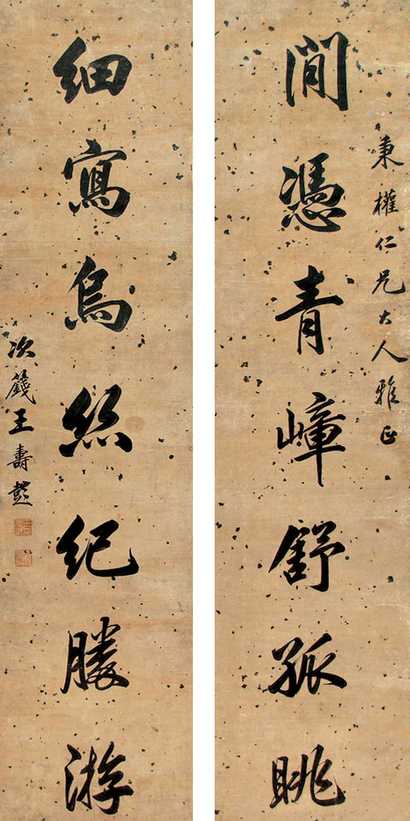 秉權仁兄大人雅正
閒憑青嶂舒孤眺
細寫烏絲紀勝游
次籛王壽彭